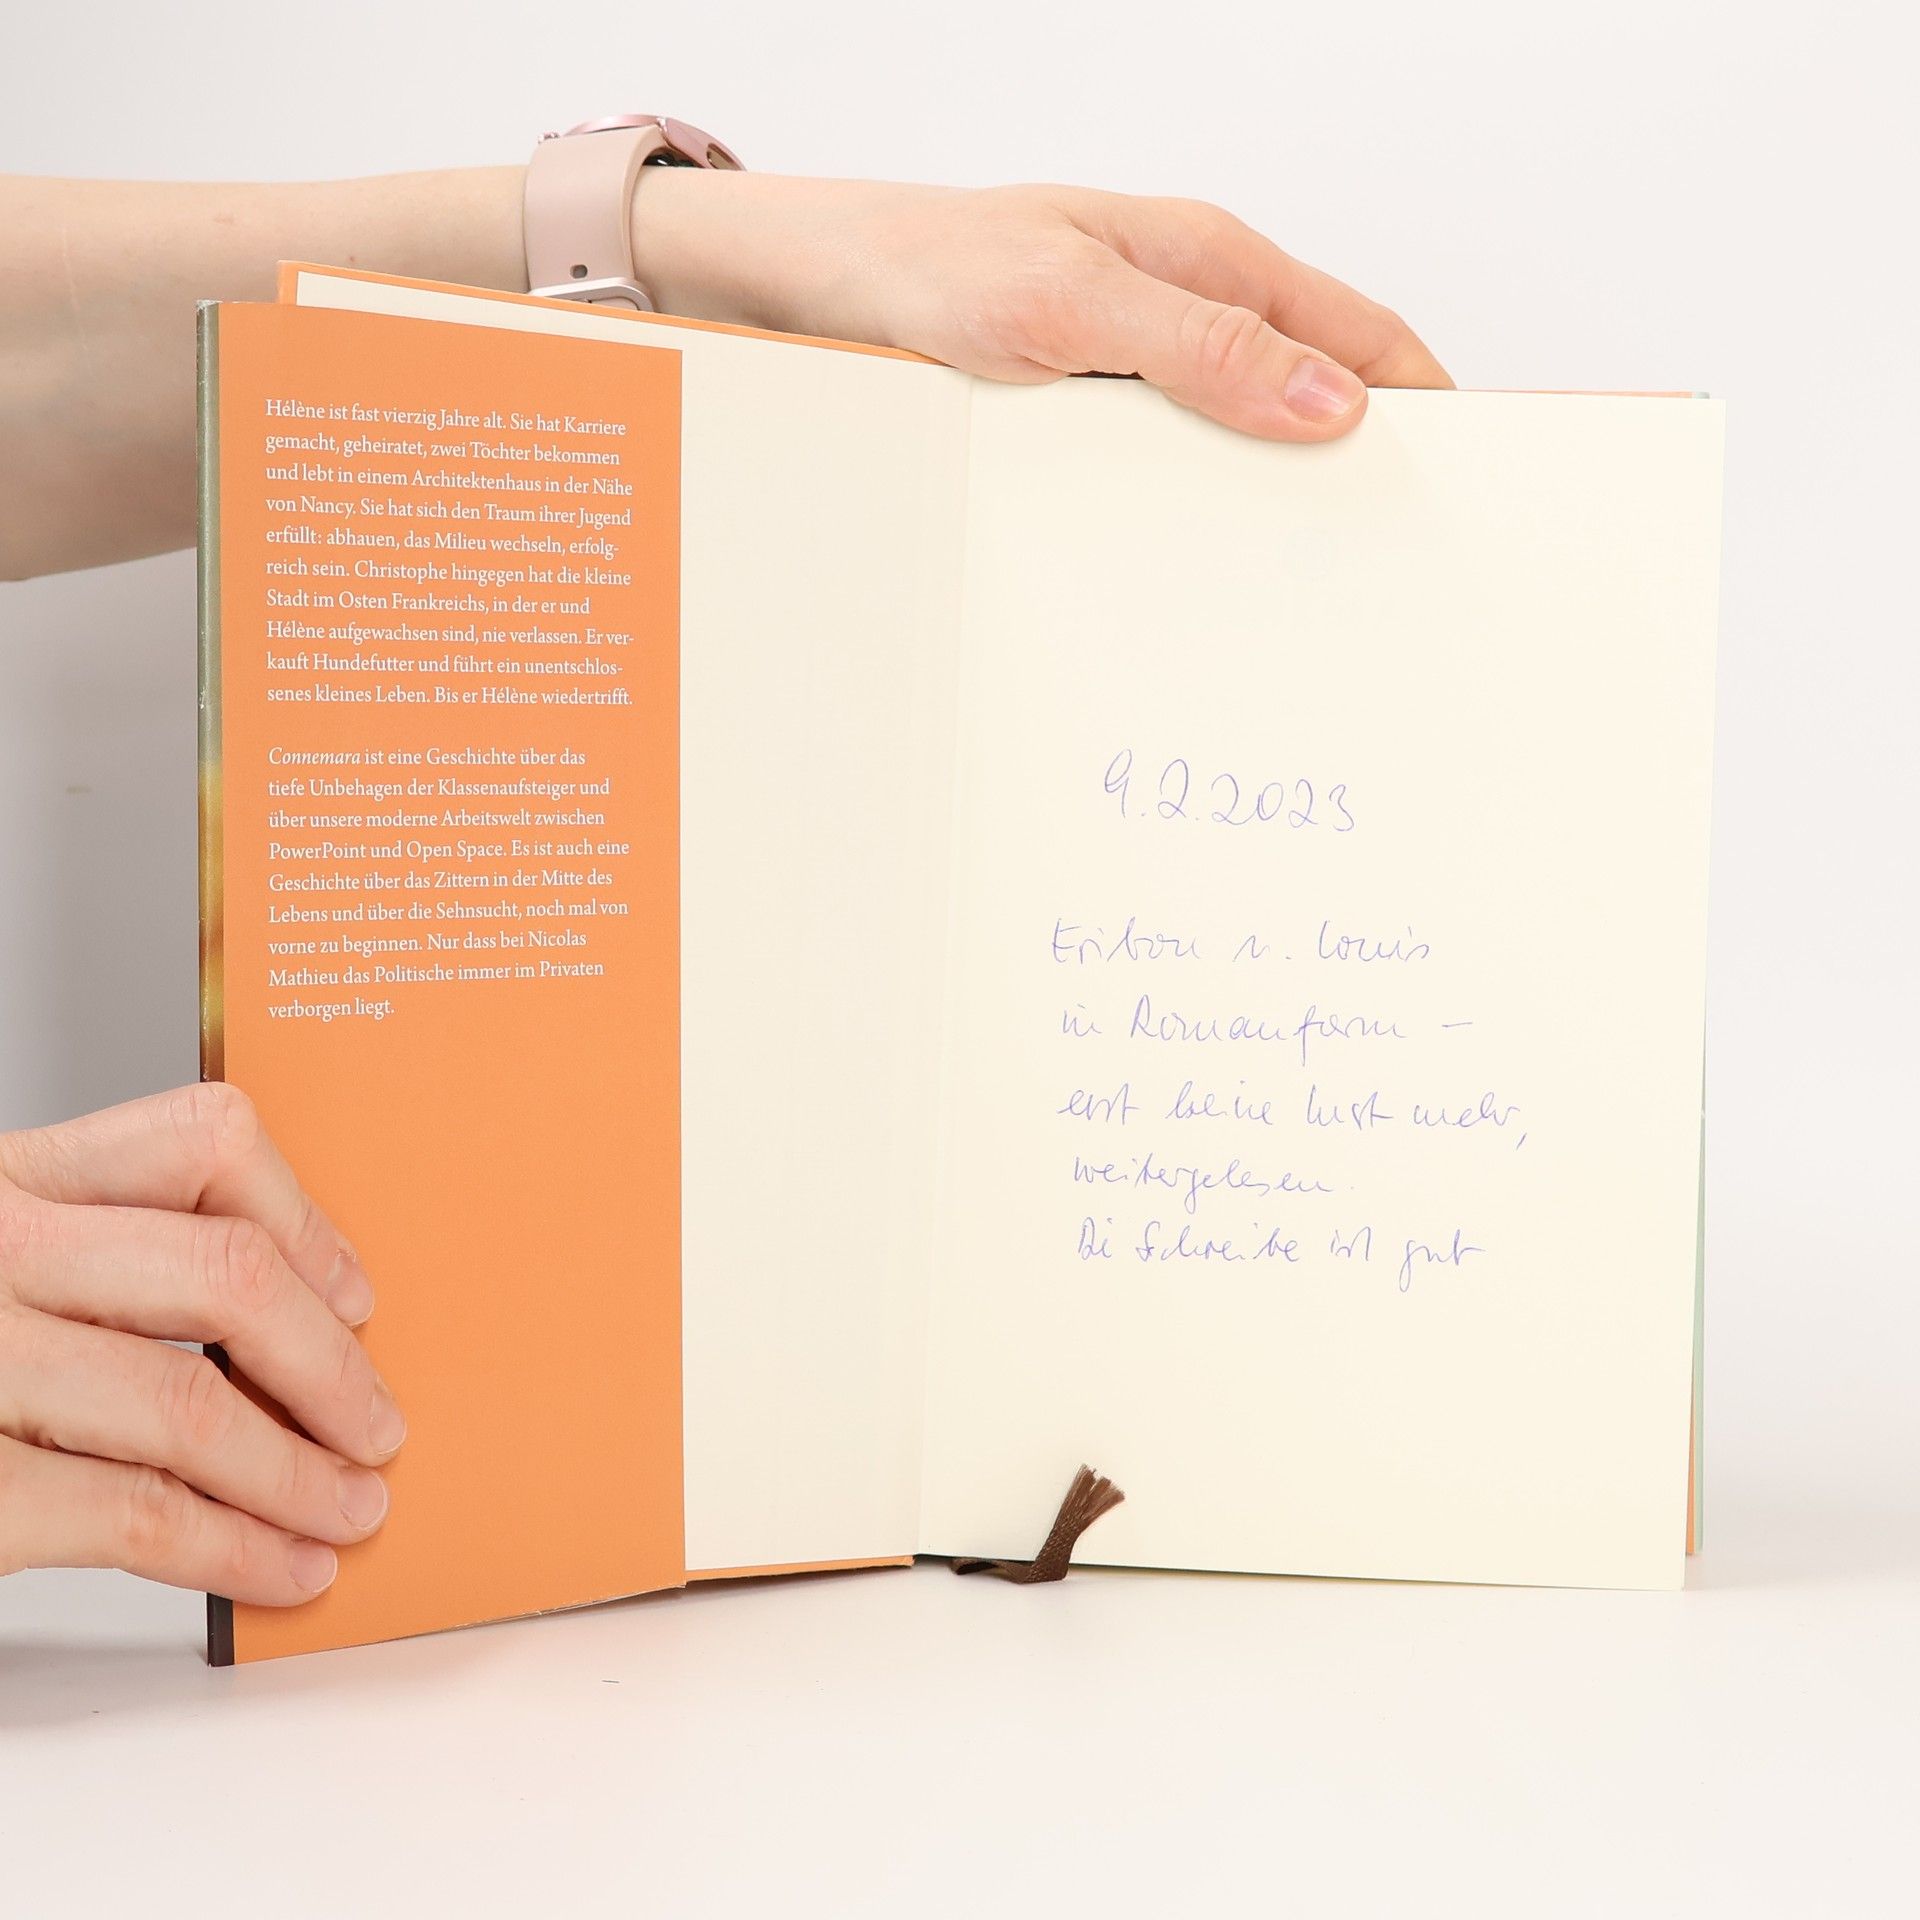 Hélène ist fast vierzig Jahre alt. Sie hat Karriere
gemacht, geheiratet, zwei Töchter bekommen
und lebt in einem Architektenhaus in der Nähe
von Nancy. Sie hat sich den Traum ihrer Jugend
erfüllt: abhauen, das Milieu wechseln, erfolg-
reich sein. Christophe hingegen hat die kleine
Stadt im Osten Frankreichs, in der er und
Hélène aufgewachsen sind, nie verlassen. Er ver-
kauft Hundefutter und führt ein unentschlos-
senes kleines Leben. Bis er Hélène wiedertrifft.
Connemara ist eine Geschichte über das
tiefe Unbehagen der Klassenaufsteiger und
über unsere moderne Arbeitswelt zwischen
PowerPoint und Open Space. Es ist auch eine
Geschichte über das Zittern in der Mitte des
Lebens und über die Sehnsucht, noch mal von
vorne zu beginnen. Nur dass bei Nicolas
Mathieu das Politische immer im Privaten
verborgen liegt.
9.2.2023
Eribon u. Louis
in Romanform –
erst keine Lust mehr,
weitergelesen.
Di Schreibe ist gut